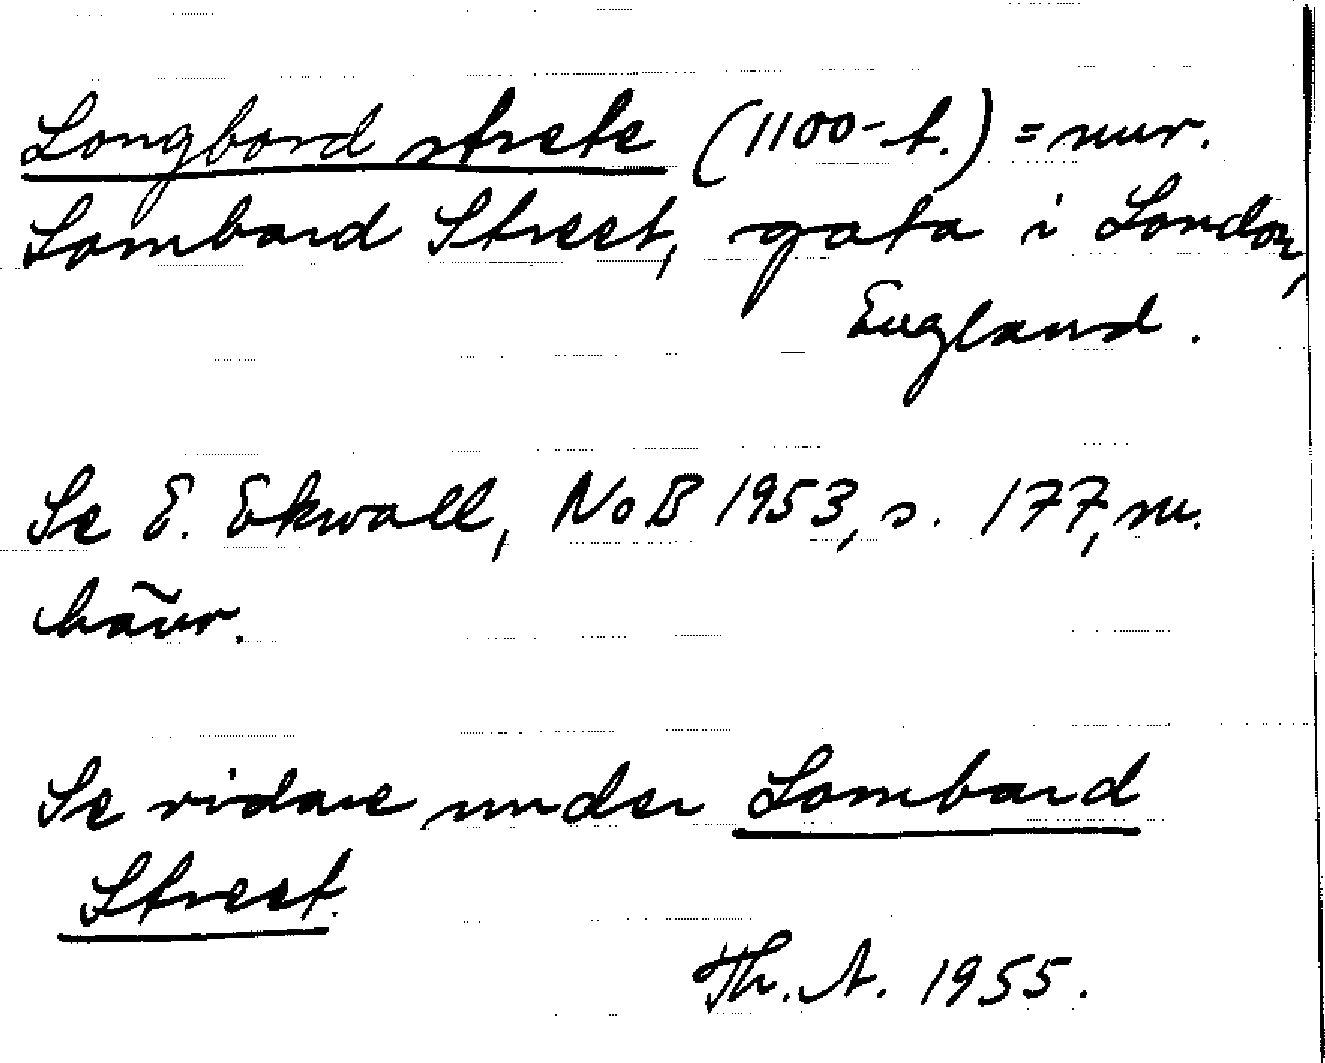 Longbord strete (1100-t.) = nuv.
Lombard Street, gata i London,
England.
Se E. Ekwall, NoB 1953, s. 177, m.
hänv.
Se vidare under Lombard
Street.
Th. A. 1955.